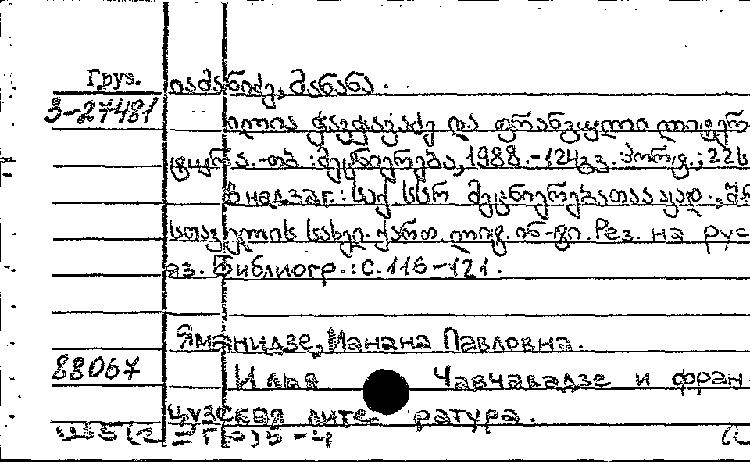 Груз.
იამანიძე, მანანა.
3-27481
ილია ჭავჭავაძე და ფრანგული ლიტერ
ატურა.-თბ.:მეცნიერება,1988.-124გვ. პორტ.;22ს
В надзаг.: საქ სსრ მეცნიერებათა აკად., შრ
სთაველის სახელ. ქართ. ლიტ. ინ-ტი. Рез. на рус
яз. Библиогр.: с.116-121.
Яманидзе, Манана Павловна.
88067
Илья Чавчавадзе и фран-
цузская лите- ратура.